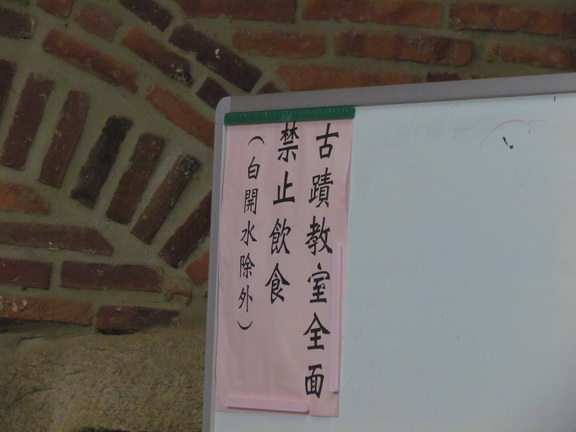 古蹟教室全面
禁止飲食
（白開水除外）